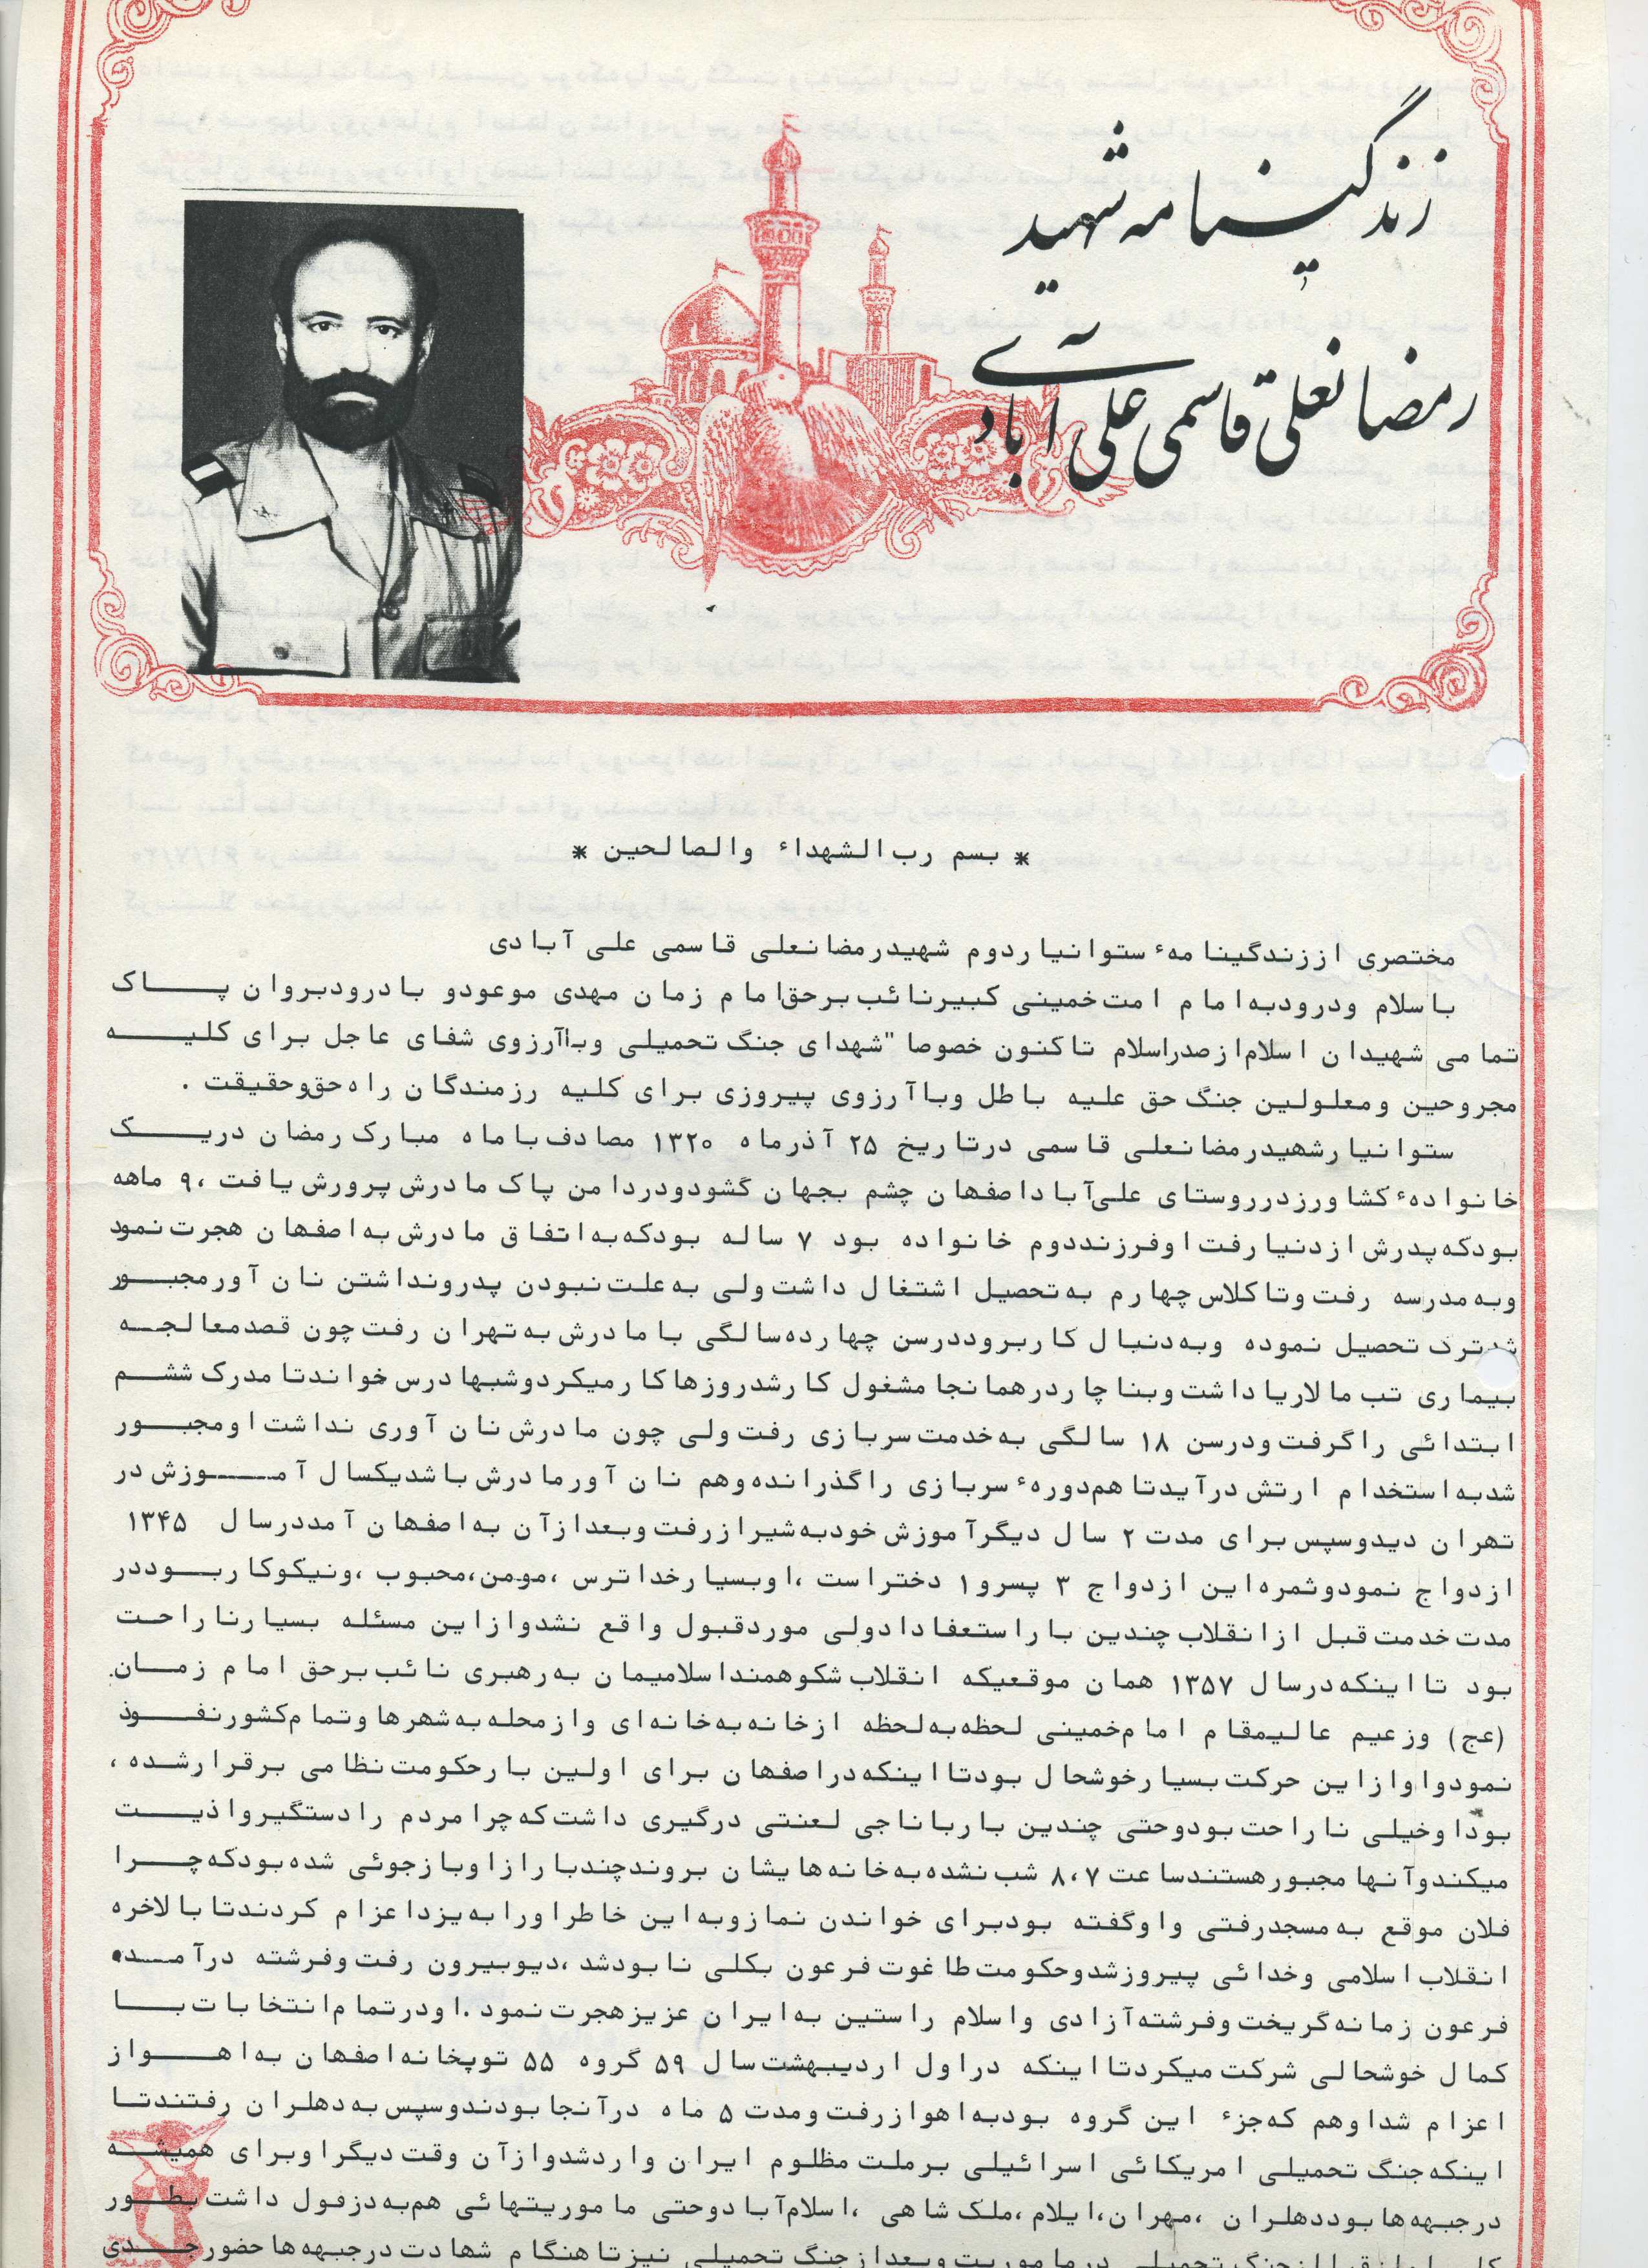 زندگینامه شهید
رمضانعلی قاسمی علی آبادی
* بسم رب الشهداء والصالحین *
مختصری اززندگینامهء ستوانیاردوم شهیدرمضانعلی قاسمی علی آبادی
باسلام ودرودبه امام امت خمینی کبیرنائب برحق امام زمان مهدی موعودو بادرودبروان پاک
تمامی شهیدان اسلام ازصدراسلام تاکنون خصوصا "شهدای جنگ تحمیلی وباآرزوی شفای عاجل برای کلیه
مجروحین ومعلولین جنگ حق علیه باطل وباآرزوی پیروزی برای کلیه رزمندگان راه حق وحقیقت .
ستوانیارشهیدرمضانعلی قاسمی درتاریخ ۲۵ آذرماه ۱۳۲۰ مصادف باماه مبارک رمضان دریک
خانوادهء کشاورزدرروستای علی آباداصفهان چشم بجهان گشودودردامن پاک مادرش پرورش یافت ،۹ ماهه
بودکه پدرش ازدنیارفت اوفرزنددوم خانواده بود ۷ ساله بودکه به اتفاق مادرش به اصفهان هجرت نمود
وبه مدرسه رفت وتاکلاس چهارم به تحصیل اشتغال داشت ولی به علت نبودن پدرونداشتن نان آورمجبور
شدترک تحصیل نموده وبه دنبال کاربروددرسن چهارده سالگی بامادرش به تهران رفت چون قصدمعالجه
بیماری تب مالاریاداشت وبناچاردرهمانجامشغول کارشدروزهاکارمیکردوشبهادرس خواندتامدرک ششم
ابتدائی راگرفت ودرسن ۱۸ سالگی به خدمت سربازی رفت ولی چون مادرش نان آوری نداشت اومجبور
شدبه استخدام ارتش درآیدتاهم دورهء سربازی راگذرانده وهم نان آورمادرش باشدیکسال آموزش در
تهران دیدوسپس برای مدت ۲ سال دیگرآموزش خودبه شیرازرفت وبعدازآن به اصفهان آمددرسال ۱۳۴۵
ازدواج نمودوثمره این ازدواج ۳ پسرو۱ دختراست ،اوبسیارخداترس ،مومن،محبوب ،ونیکوکاربوددر
مدت خدمت قبل ازانقلاب چندین باراستعفادادولی موردقبول واقع نشدوازاین مسئله بسیارناراحت
بود تااینکه درسال ۱۳۵۷ همان موقعیکه انقلاب شکوهمنداسلامیمان به رهبری نائب برحق امام زمان
(عج) وزعیم عالیمقام امام خمینی لحظه به لحظه ازخانه به خانه ای وازمحله به شهرهاوتمام کشورنفوذ
نمودواوازاین حرکت بسیارخوشحال بودتااینکه دراصفهان برای اولین بارحکومت نظامی برقرارشده ،
بوداوخیلی ناراحت بودوحتی چندین بارباناجی لعنتی درگیری داشت که چرامردم رادستگیرواذیت
میکندوآنهامجبورهستندساعت ۸،۷ شب نشده به خانه هایشان بروندچندبارازاوبازجوئی شده بودکه چرا
فلان موقع به مسجدرفتی واوگفته بودبرای خواندن نمازوبه این خاطراورابه یزداعزام کردندتابالاخره
انقلاب اسلامی وخدائی پیروزشدوحکومت طاغوت فرعون بکلی نابودشد ،دیوبیرون رفت وفرشته درآمد،
فرعون زمانه گریخت وفرشته آزادی واسلام راستین به ایران عزیزهجرت نمود .اودرتمام انتخابات با
کمال خوشحالی شرکت میکردتااینکه دراول اردیبهشت سال ۵۹ گروه ۵۵ توپخانه اصفهان به اهواز
اعزام شداوهم که جزء این گروه بودبه اهوازرفت ومدت ۵ ماه درآنجابودندوسپس به دهلران رفتندتا
اینکه جنگ تحمیلی امریکائی اسرائیلی برملت مظلوم ایران واردشدوازآن وقت دیگراوبرای همیشه
درجبهه هابوددهلران ،مهران،ایلام ،ملک شاهی ،اسلام آبادوحتی ماموریتهائی هم به دزفول داشت بطور
جنگ تحمیلی درماموریت وبعدازجنگ تحمیلی نیزتاهنگام شهادت درجبهه هاحضورجدی